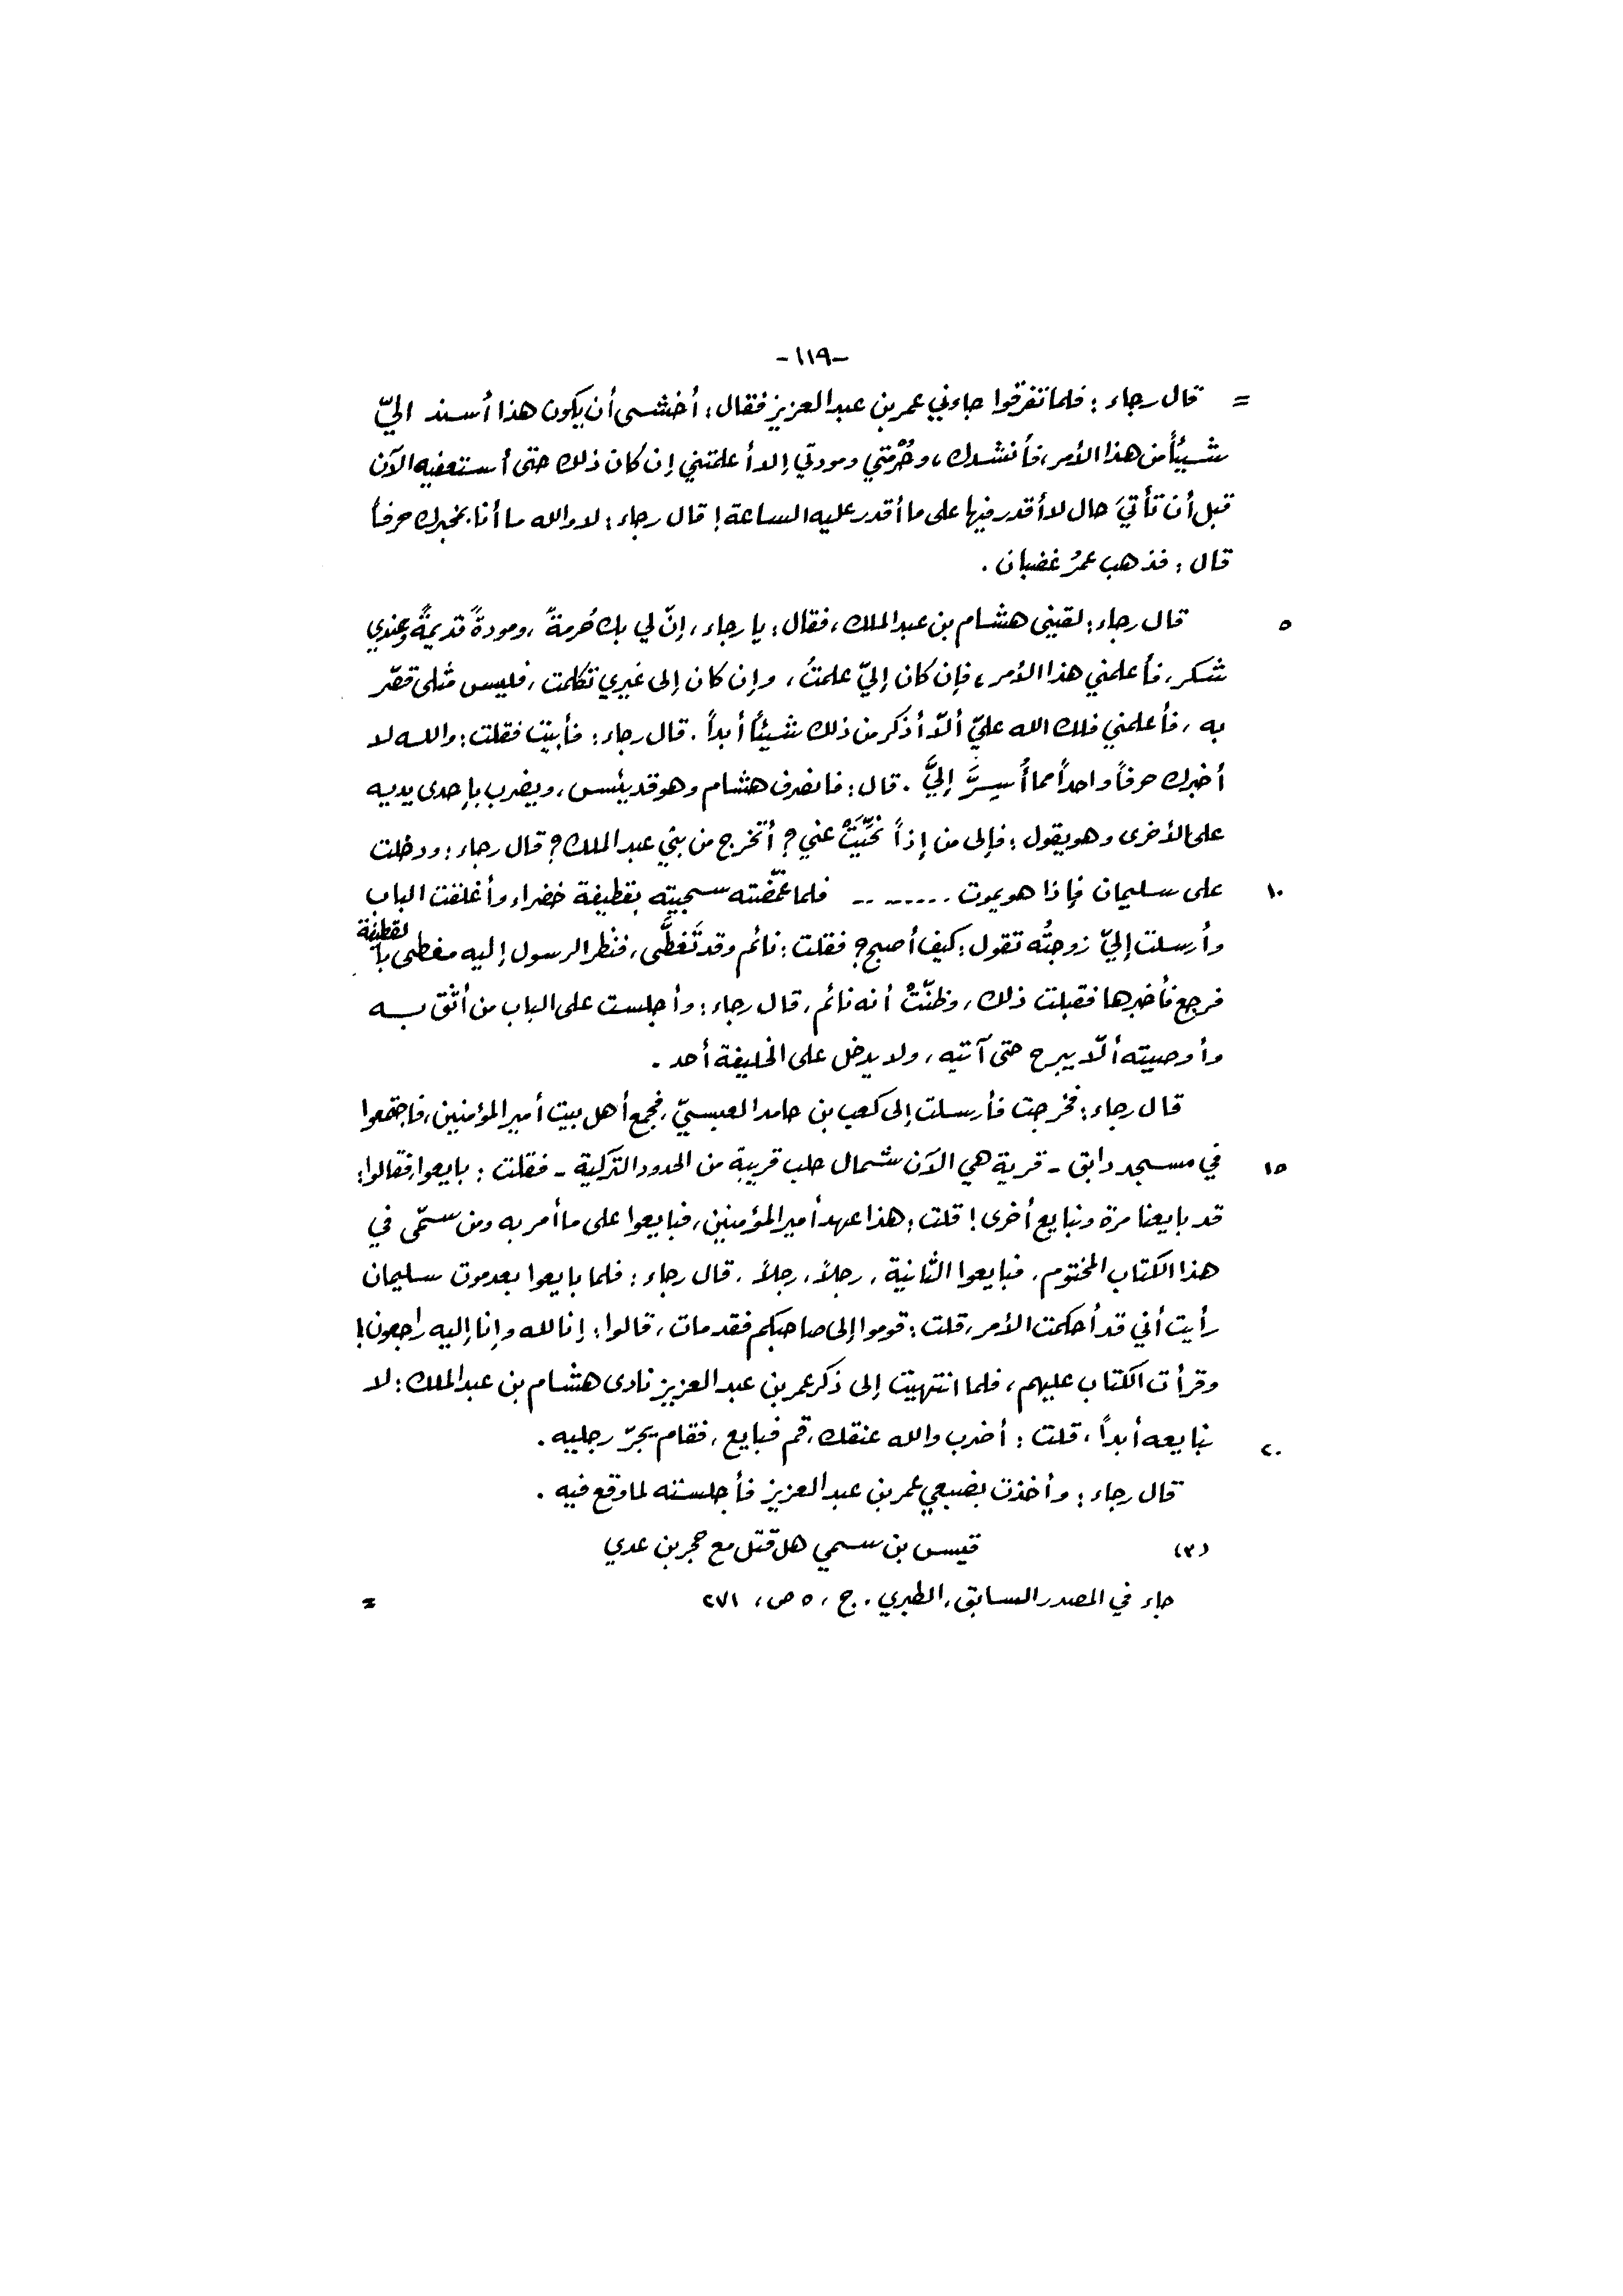 -١١٩-
= قال رجاء : فلما تفرقوا جاءني عمر بن عبد العزيز فقال : أخشى أن يكون هذا أسند اليّ
شيئاً من هذا الأمر، فأنشدك، وحُرْمتي ومودتي إلا أعلمتني إن كان ذلك حتى أستعفيه الآن
قبل أن تأتيَ حال لا أقدر فيها على ما أقدر عليه الساعة ! قال رجاء : لا والله ما أنا بمخبرك حرفاً
قال : فذهب عمرُ غضبان .
٥ قال رجاء : لقيني هشام بن عبد الملك، فقال : يا رجاء، إنّ لي بك حُرمةً، ومودةً قديمةً وعندي
شكر، فأعلمني هذا الأمر، فإن كان إليّ علمتُ، وإن كان إلى غيري تكلمت، فليس مثلي قصّر
به، فأعلمني فلك الله عليّ ألّا أذكر من ذلك شيئاً أبداً . قال رجاء : فأبيت فقلت : والله لا
أخبرك حرفاً واحداً مما أُسِرَّ إليَّ . قال : فانصرف هشام وهو قد يئس، ويضرب بإحدى يديه
على الأخرى وهو يقول : فإلى من إذاً نُحِّيَتْ عني ؟ أتخرج من بني عبد الملك ؟ قال رجاء : ودخلت
١٠ على سليمان فإذا هو يموت ........ فلما غمّضته سجيته بقطيفة خضراء وأغلقت الباب
وأرسلت إليّ زوجتُه تقول : كيف أصبح ؟ فقلت : نائم وقد تَغطَّى، فنظر الرسول إليه مغطى بالقطيفة
فرجع فأخبرها فقبلت ذلك، وظنّتْ أنه نائم، قال رجاء : وأجلست على الباب من أثق به
وأوصيته ألّا يبرح حتى آتيه، ولا يدخل على الخليفة أحد .
قال رجاء : فخرجت فأرسلت إلى كعب بن حامد العبسيّ، فجمع أهل بيت أمير المؤمنين، فاجتمعوا
١٥ في مسجد دابق - قرية هي الآن شمال حلب قريبة من الحدود التركية - فقلت : بايعوا، فقالوا :
قد بايعنا مرة ونبايع أخرى ! قلت : هذا عهد أمير المؤمنين، فبايعوا على ما أمر به ومن سمّى في
هذا الكتاب المختوم، فبايعوا الثانية، رجلاً، رجلاً، قال رجاء : فلما بايعوا بعد موت سليمان
رأيت أني قد أحكمت الأمر، قلت : قوموا إلى صاحبكم فقد مات، قالوا : إنا لله وإنا إليه راجعون !
وقرأت الكتاب عليهم، فلما انتهيت إلى ذكر عمر بن عبد العزيز نادى هشام بن عبد الملك : لا
٢٠ نبايعه أبداً، قلت : أضرب والله عنقك، قم فبايع، فقام يجرّ رجليه .
قال رجاء : وأخذت بضبعي عمر بن عبد العزيز فأجلسته لما وقع فيه .
(٣) قيس بن سمي هل قتل مع حجر بن عدي
جاء في المصدر السابق، الطبري . ج ، ٥ ص ، ٢٧١ =